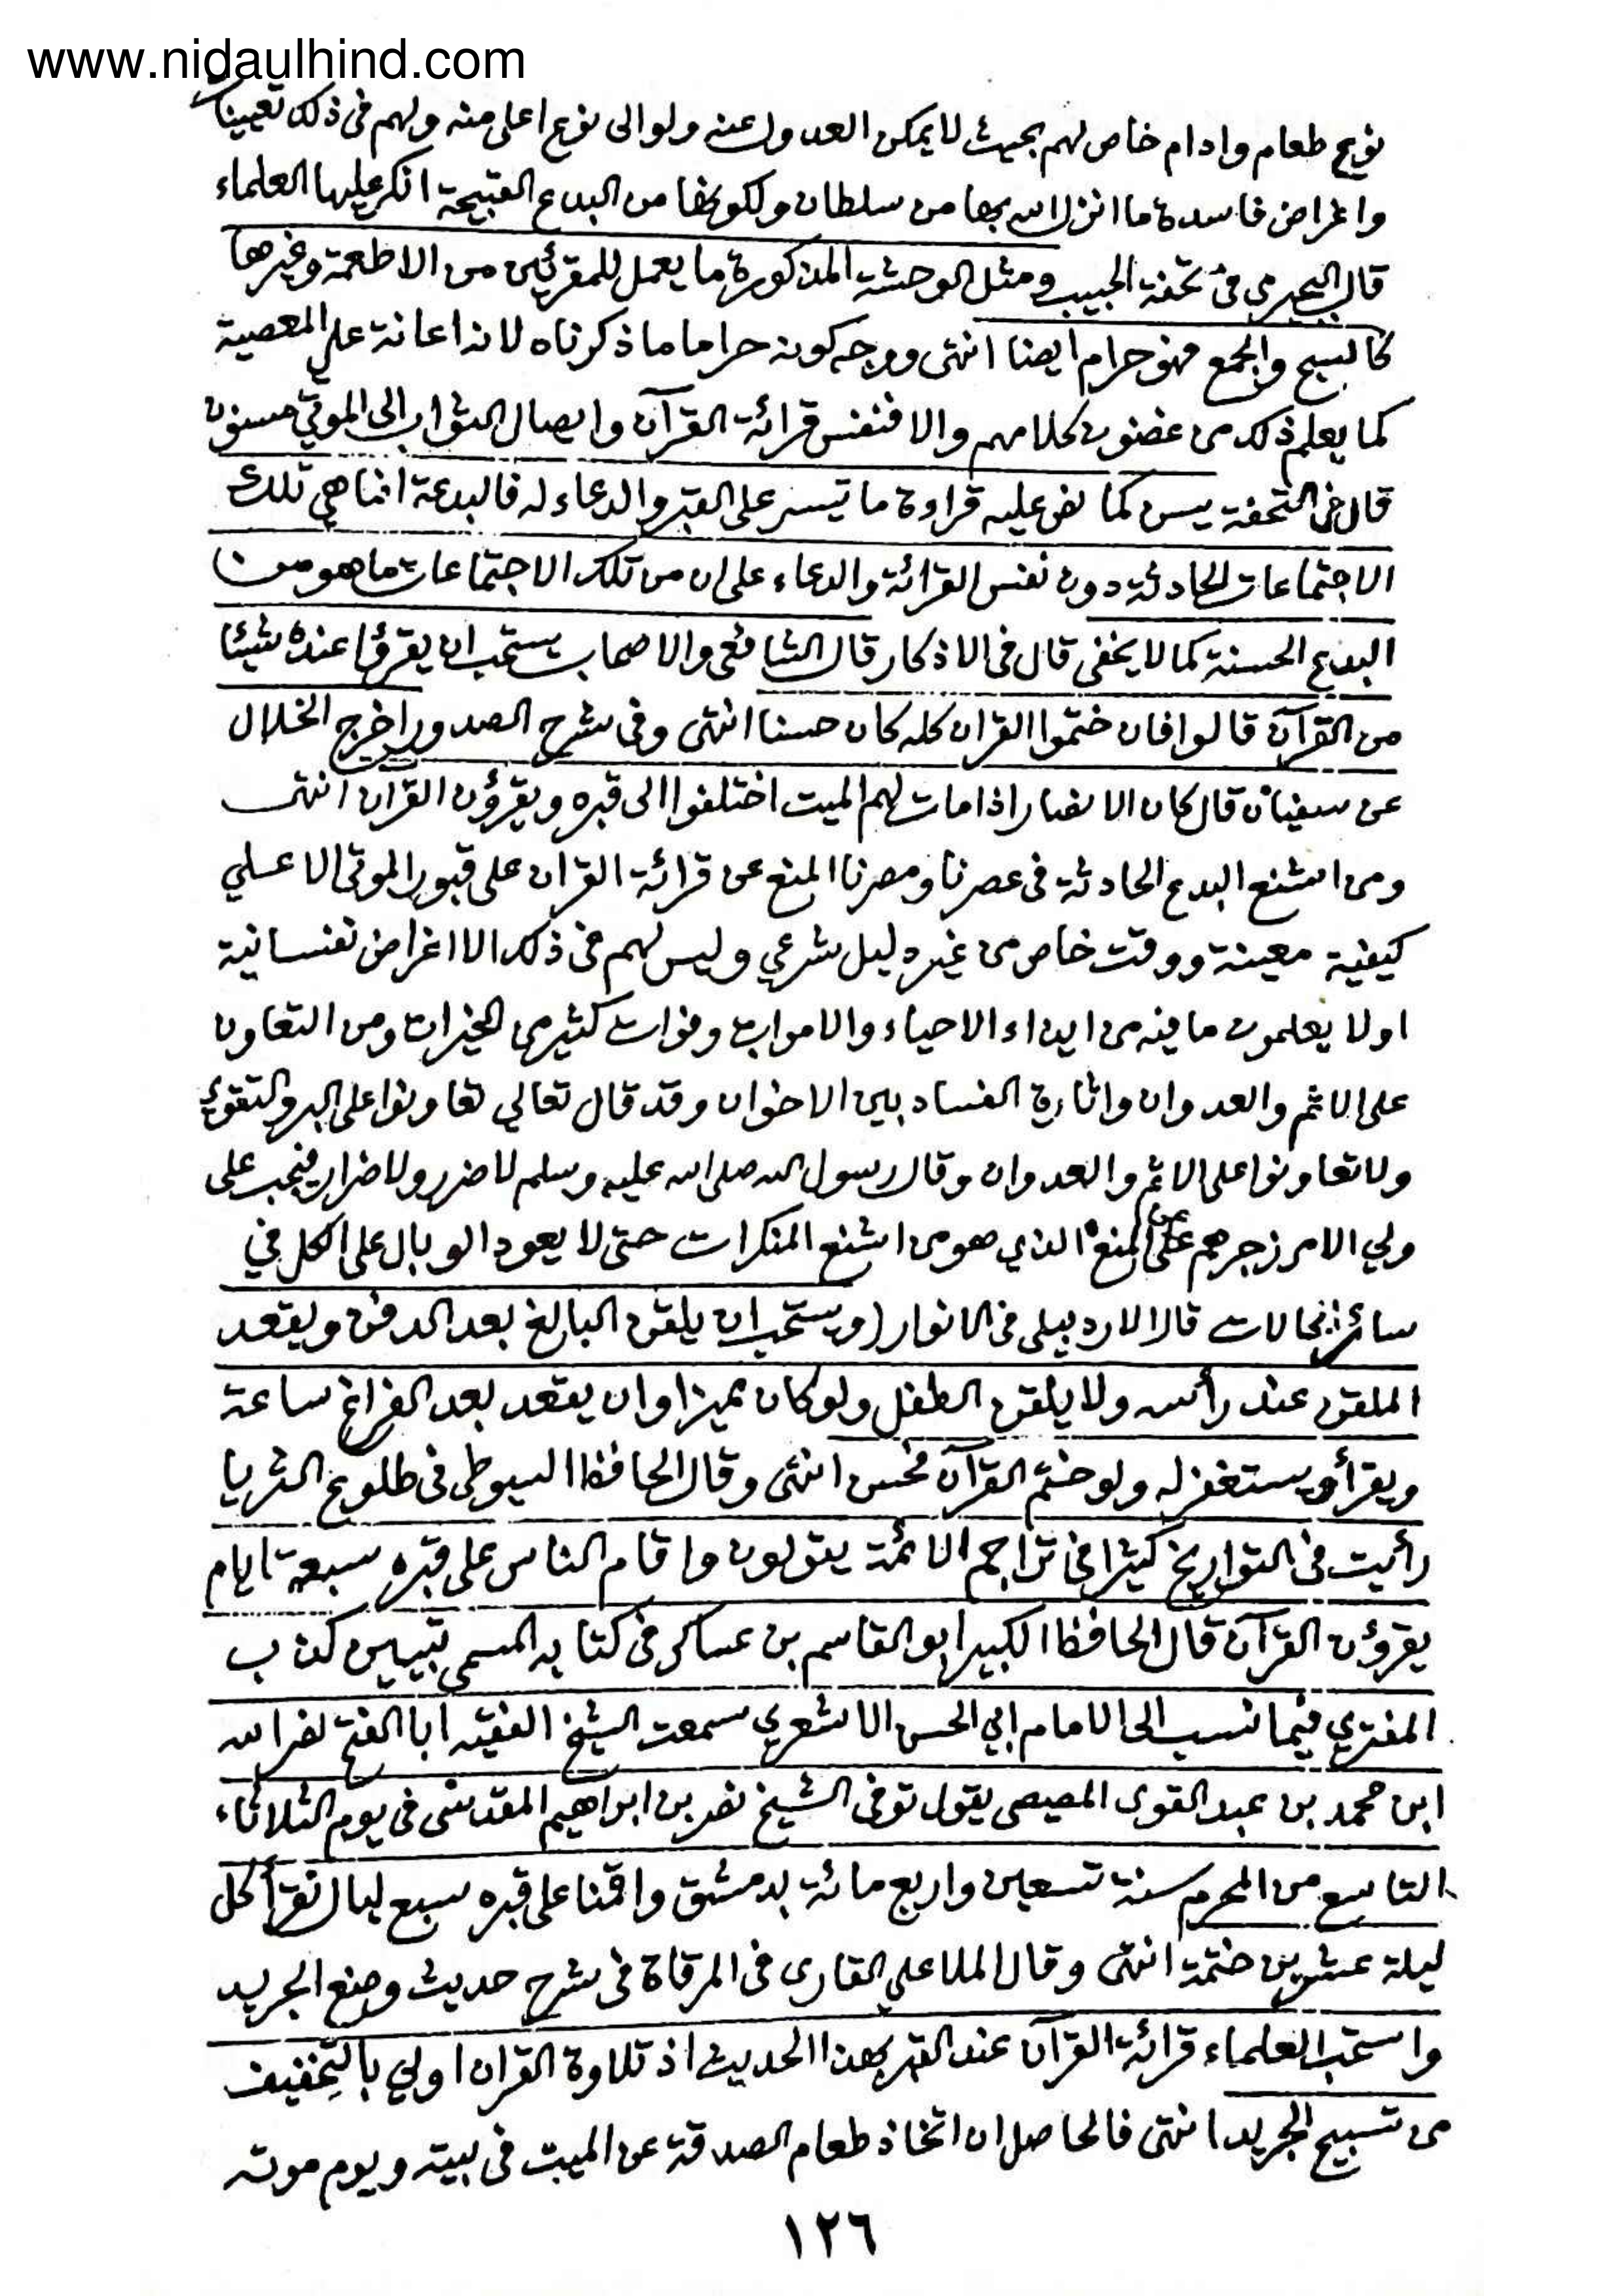 www.nidaulhind.com
نوع طعام وادام خاص لهم بحيث لا يمكن العدول عنه ولو الى نوع اعلى منه ولهم فى ذلك تعيينات
واغراض فاسدة ما انزل الله بها من سلطان ولكونها من البدع القبيحة انكر عليها العلماء
قال البجيرمى فى تحفة الحبيب ومثل الوحشة المذكورة ما يعمل للمقرئين من الاطعمة وغيرها
كالسبح والجمع فهو حرام ايضا انتهى ووجه كونه حراما ما ذكرناه لانه اعانة على المعصية
كما يعلم ذلك من غضون كلامهم والا فنفس قرائة القرآن وايصال الثواب الى الموتى مسنون
قال فى التحفة يسن كما نص عليه قراءة ما تيسر على القبر والدعاء له فالبدعة انما هى تلك
الاجتماعات الحادثة دون نفس القرائة والدعاء على ان من تلك الاجتماعات ما هو من
البدع الحسنة كما لا يخفى قال فى الاذكار قال الشافعى والاصحاب يستحب ان يقرؤا عنده شيئا
من القرآن قالوا فان ختموا القران كله كان حسنا انتهى وفى شرح الصدور اخرج الخلال
عن سفيان قال كان الانصار اذا مات لهم الميت اختلفوا الى قبره ويقرؤن القرآن انتهى
ومن اشنع البدع الحادثة فى عصرنا ومصرنا المنع عن قرائة القران على قبور الموتى الا على
كيفية معينة ووقت خاص من غير دليل شرعي وليس لهم فى ذلك الا اغراض نفسانية
اولا يعلمون ما فيه من ايذاء الاحياء والاموات وفوات كثير من الخيرات ومن التعاون
على الاثم والعدوان واثارة الفساد بين الاخوان وقد قال تعالى تعاونوا على البر والتقوى
ولا تعاونوا على الاثم والعدوان وقال رسول الله صلى الله عليه وسلم لا ضرر ولا ضرار فيجب على
ولي الامر زجرهم على المنع الذي هو من اشنع المنكرات حتى لا يعود الوبال على الكل في
سائر الحالات قال الاردبيلى فى الانوار (ويستحب ان يلقن البالغ بعد الدفن ويقعد
الملقن عند رأسه ولا يلقن الطفل ولو كان مميزا وان يقعد بعد الفراغ ساعة
ويقرأ ويستغفر له ولو ختم القرآن فحسن انتهى وقال الحافظ السيوطى فى طلوع الثريا
رأيت فى التواريخ كثيرا فى تراجم الائمة يقولون واقام الناس على قبره سبعة ايام
يقرؤن القرآن قال الحافظ الكبير ابو القاسم بن عساكر فى كتابه المسمى تبيين كذب
المفترى فيما نسب الى الامام ابي الحسن الاشعري سمعت الشيخ الفقيه ابا الفتح نصر الله
ابن محمد بن عبد القوى المصيصى يقول توفى الشيخ نصر بن ابراهيم المقدسى فى يوم الثلاثاء
التاسع من المحرم سنة تسعين واربع مائة بدمشق واقمنا على قبره سبع ليال نقرأ كل
ليلة عشرين ختمة انتهى وقال الملا علي القارى فى المرقاة فى شرح حديث وضع الجريد
واستحب العلماء قرائة القرآن عند القبر بهذا الحديث اذ تلاوة القران اولى بالتخفيف
من تسبيح الجريد انتهى فالحاصل ان اتخاذ طعام الصدقة عن الميت فى بيته ويوم موته
١٢٦